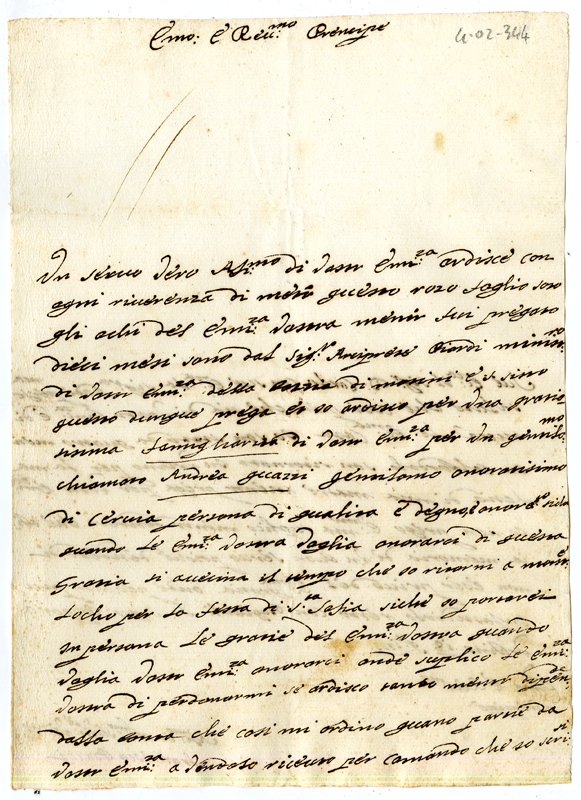 Emo: E Reu:mo Prencipe
4-02-344
Un seruo vero di vostr Emi:za ardisce con
ogni riuerenza di questo rozo foglio soto
gli ochi del Emi:za vostra mentr fui pregato
dieci mesi sono dal Sig:r Arciprete
di vostr Emi:za della di
questo dunque prega et io ardisco per una gratio
sissima famigliarita di vostr Emi:za per un gentilo:mo
chiamato Andrea guazzi gentilomo onoratisimo
di ceruia persona di qualita e degno
quando le Emi:za vostra voglia onorarci di questa
gratia si auecina il tempo che io ritorni a
locho per la festa di S:ta Sofia siche io portarei
in persona le gratie del Emi:za vostra quando
voglia vostr Emi:za onorarci onde suplico le Emi:za
vostra di perdonarmi se ardisco tanto mentr
dalla che cosi mi ordino quano partie da
vostr Emi:za a riceuto per comando che io